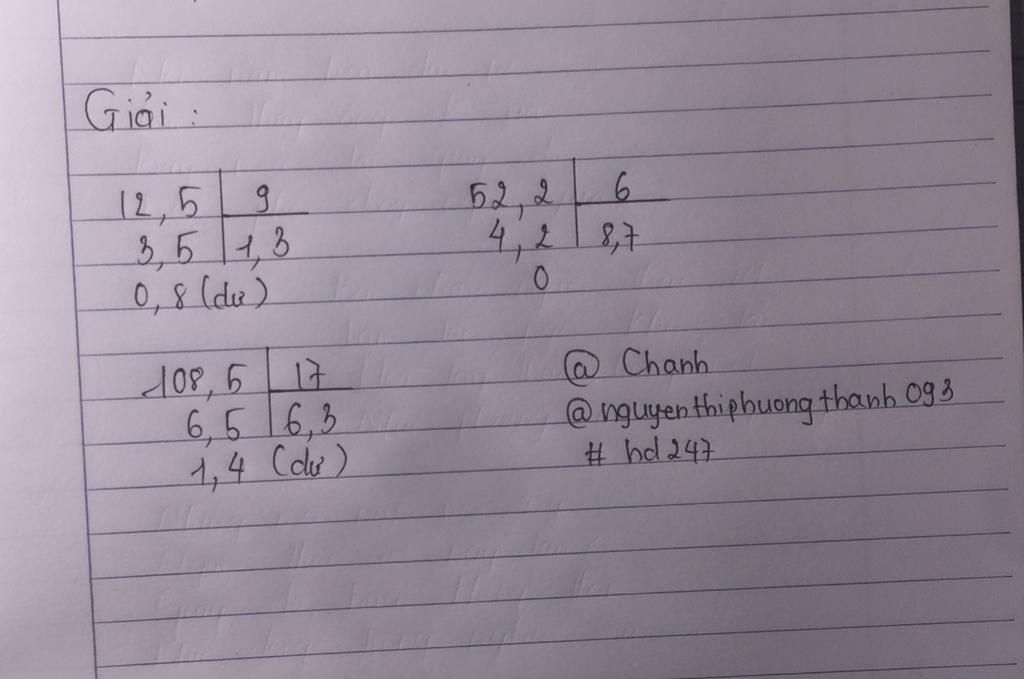 Giải :
12,5 9
3,5 1,3
0,8 (dư)
52,2 6
4,2 8,7
0
108,5 17
6,5 6,3
1,4 (dư)
@ Chanh
@nguyenthiphuongthanh093
# hd247